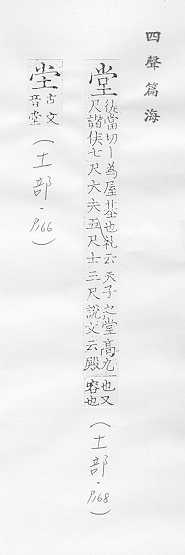 四聲篇海
堂
徒當切丨為屋基也礼云天子之堂高九
尺諸侯七尺大夫五尺士三尺說文云殿
也又
容也
(土部·P.68)
坣
古文
音堂
(土部·P.66)